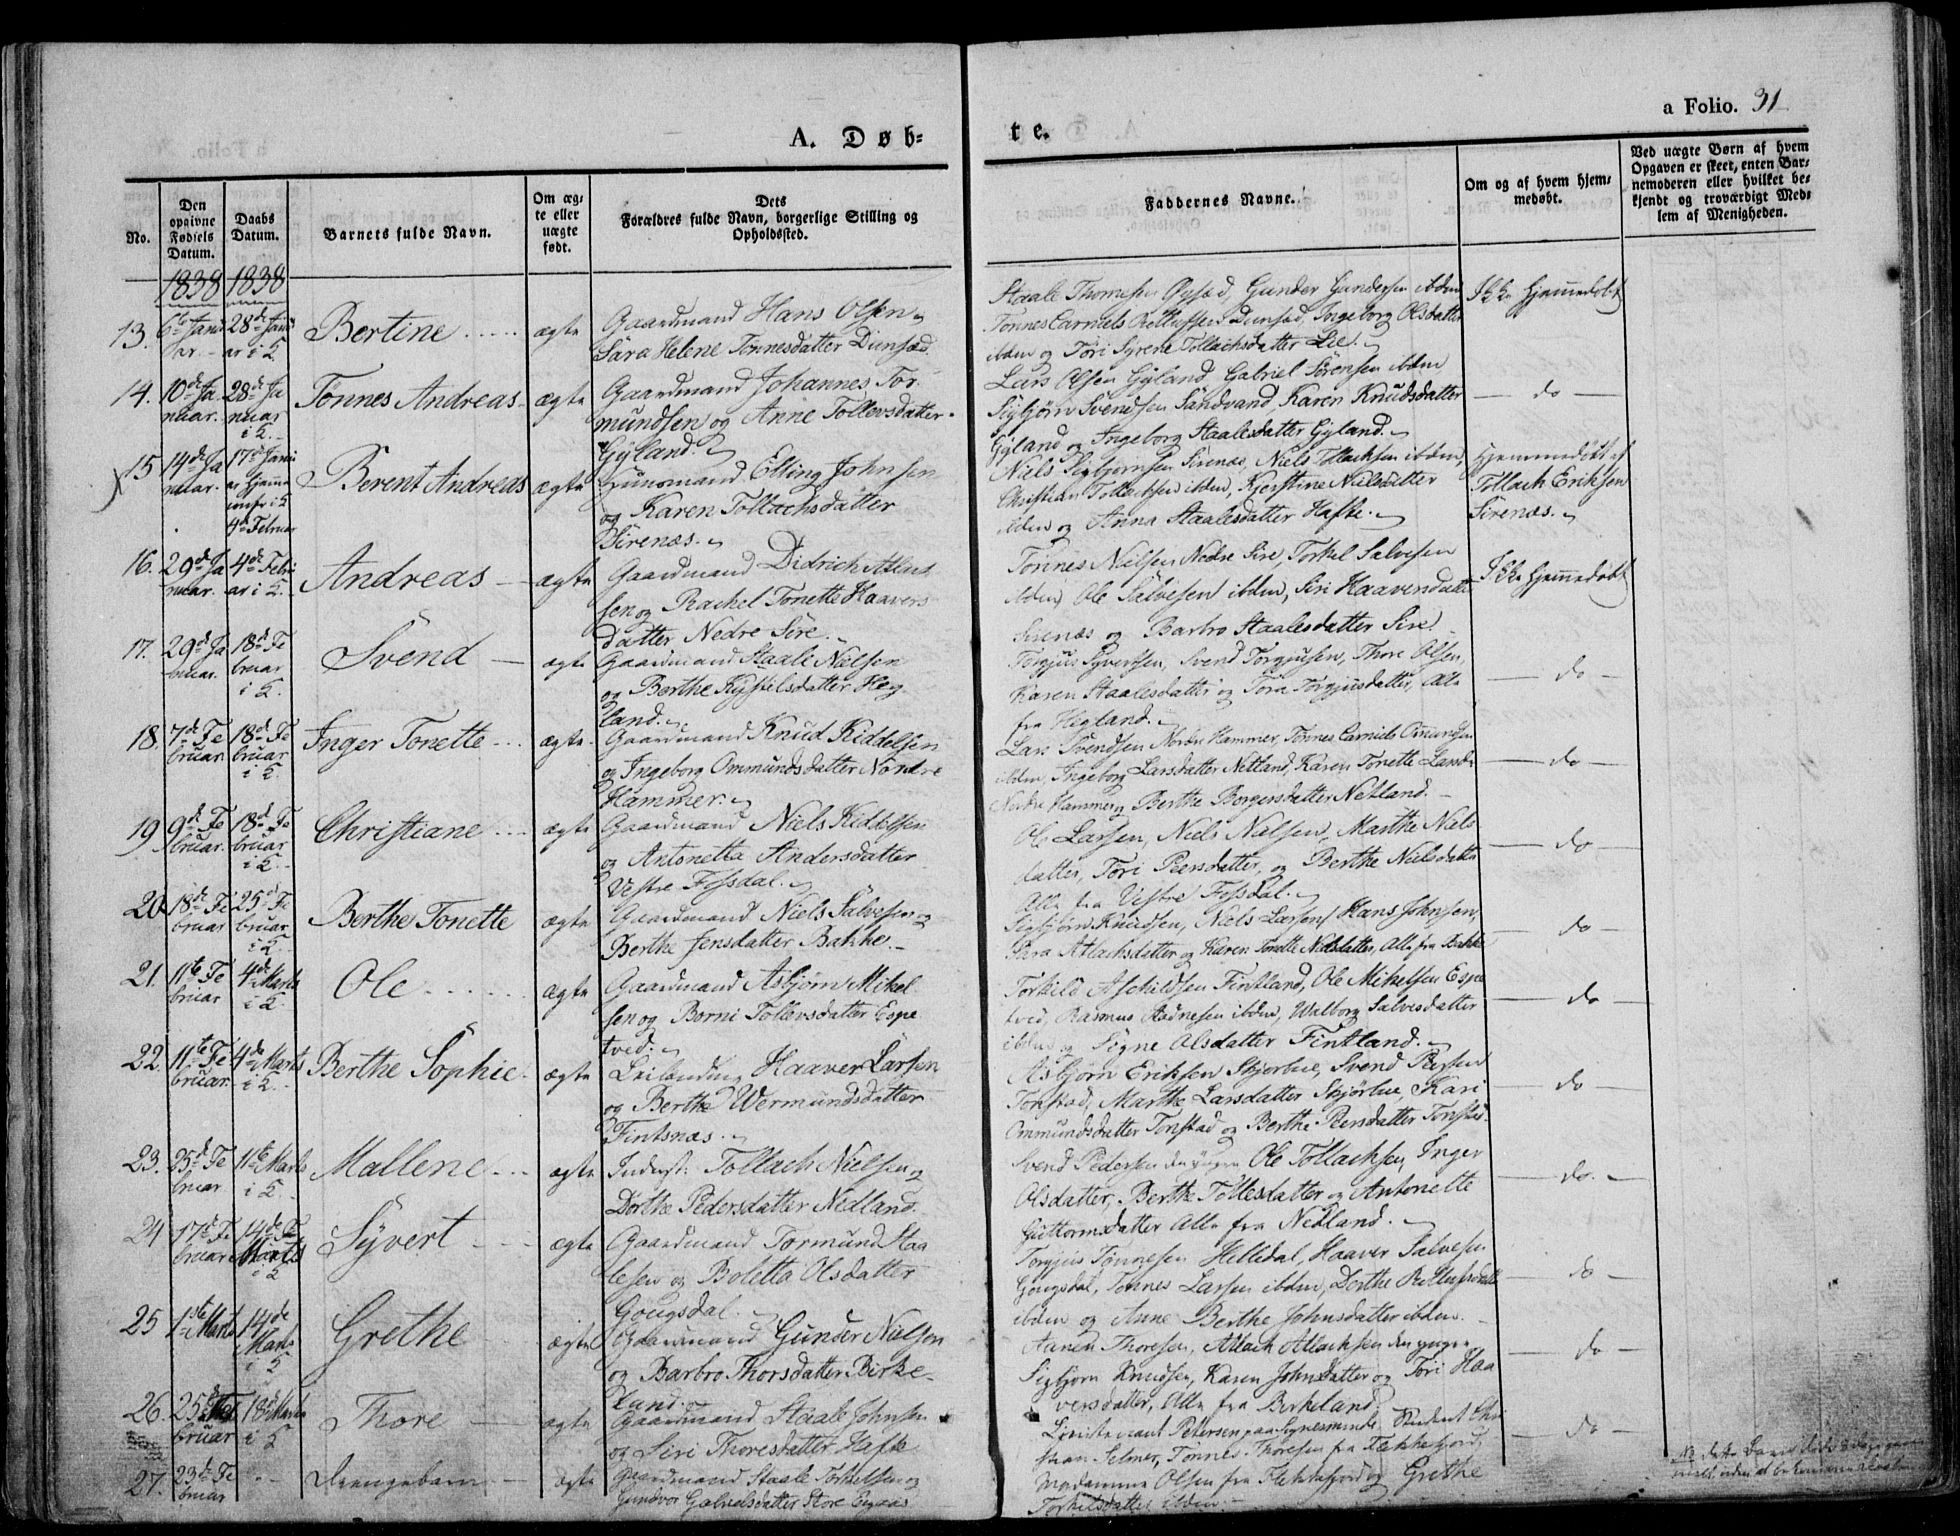 a Folio. 31
A. Døb-
te.
No.
Den opgivne Fødsels Datum.
Daabs Datum.
Barnets fulde Navn.
Om ægte eller uægte født.
Dets Forældres fulde Navn, borgerlige Stilling og Opholdssted.
Faddernes Navne.
Om og af hvem hjemmedøbt.
Ved uægte Børn af hvem Opgaven er skeet, enten Barnemoderen eller hvilket bekjendt og troværdigt Medlem af Menigheden.
1838 1838
13. 6te Janu
ar. 28de Janu
ar i K.
Bertine
ægte
Gaardmand Hans Olsen
Sara Helene Tonnesdatter Dunsæd.
Staale Thomesen Øysæd, Gunder Gundersen ibdm
Tønnes Carnels Dunsæd, Ingeborg Olsdatter
ibdm og Tøri Syrene Tollachsdatter Lie.
Ikke Hjemmedøbt
14. 10de Ja
nuar. 28de Ja
nuar
i K.
Tønnes Andreas
ægte
Gaardmand Johannes Tor
mundsen og Anne Tollevsdatter
Gyland.
Lars Olsen Gyland, Gabriel Sørensen ibdm
Sigbjørn Svendsen Sandvand, Karen Knudsdatter
Gyland og Ingeborg Staalesdatter Gyland.
do
15 14de Ja
nuar. 17de Janu
ar Hjemme
i K
4de Februar
Berent Andreas
ægte
Elling Johnsen
og Karen Tollachsdatter
Sirenæs.
Niels Sigbjørnsen Sirenæs, Niels Tollachsen ibdm,
Christian Tollachsen ibdm, Kjerstine Nielsdatter
ibdm og Anna Staalesdatter Hafte.
Hjemmedøbt af
Tollach Eriksen
Sirenæs.
16. 29de Ja
nuar. 4de Febru
ar i K.
Andreas
ægte
Gaardmand Didrich Atlak
sen og Rachel Tonette Haavers
datter Nedre Sire.
Tønnes Nielsen Nedre Sire, Torkel Salvesen
ibdm, Ole Salvesen ibdm, Siri Haavensdatter
Sirenæs og Barbro Staalesdatter Sire
Ikke Hjemmedøbt
17. 29de Ja
nuar. 18de Fe
bruar
i K.
Svend
ægte
Gaardmand Staale Nielsen
og Berthe Kjetelsdatter Heg
land.
Torgjus Syvertsen, Svend Torgjusen, Thore Olsen,
Karen Staalesdatter og Tora Torgjusdatter, Alle
fra Hegland.
do
18. 7de Fe
bruar. 18de Fe
bruar
i K.
Inger Tonette
ægte
Gaardmand Knud Kiddelsen
og Ingeborg Ommundsdatter Nordre
Hammer.
Lars Svendsen Nordre Hammer, Tønnes Carnels Omundsen
ibdm, Ingeborg Larsdatter Netland, Karen Tonette Larsdr
Nordre Hammer og Berthe Borgersdatter Netland.
do
19 9de Fe
bruar. 18de Fe
bruar
i K.
Christiane
ægte
Gaardmand Niels Kiddelsen
og Antonetta Andersdatter
Vestre Fossdal.
Ole Larsen, Niels Nielsen, Marthe Niels
datter, Tøri Peersdatter, og Berthe Nielsdatter
Alle fra Vestre Fossdal.
do
20. 18de Fe
bruar 25de Fe
bruar
i K.
Berthe Tonette
ægte
Gaardmand Niels Salvesen og
Berthe Jensdatter Bakke.
Sigbjørn Knudsen, Niels Larsen, Hans Johnsen,
Sara Atlachsdatter og Karen Tonette Nielsdatter, Alle fra Bakke
do
21. 11te Fe
bruar 4de Marts
i K.
Ole
ægte
Gaardmand Asbjørn Mikel
sen og Borni Tollevsdatter Espe
tved.
Torkild Aschildsen Fintland, Ole Mikelsen Espe
tved, Rasmus Stadnesen ibdm, Walborg Salvesdatter
ibdm og Signe Olsdatter Fintland.
do
22. 11te Fe
bruar. 4de Marts
i K.
Berthe Sophie
ægte
Leilending Haaver Larsen
og Berthe Wermundsdatter
Fintsnæs.
Asbjørn Eriksen Skjorbue, Svend Persen
Tonstad, Marthe Larsdatter Skjørbue, Kari
Ommundsdatter Tonstad og Berthe Peersdatter Tonstad.
do
23. 25de Fe
bruar 11te Marts
i K.
Mallene
ægte
Inderst: Tollach Nielsen og
Dorthe Pedersdatter Nedland.
Svend Pedersen den yngre Ole Tollachsen, Inger
Olsdatter, Berthe Tollesdatter og Antonette
Guttormsdatter Alle fra Nedland.
do.
24 17de Fe
bruar 14de Fe
Marts
i K
Syvert
ægte
Gaardmand Tormund Staa
lesen og Boletta Olsdatter
Gougsdal.
Torgjus Tønnesen Hellidal, Haaver Salvesen
Gougsdal, Tønnes Larsen ibdm, Dorthe
ibdm og Anne Berthe Johnsdatter ibdm.
do
25 1ste Marts 14de
Marts
i K
Grethe
ægte
Gaardmand Gunder Nielsen
og Barbro Thorsdatter Birke-
land.
Aanen Thoresen, Atlach Atlachsen den yngre
Sigbjørn Knudsen, Karen Johnsdatter og Tøri Haa
versdatter, Alle fra Birkeland
do
26. 25de
bruar 18de Marts
i K
Thore
ægte
Gaardmand Staale Johnsen
og Siri Thoresdatter Hafte
Petersen paa Signesminde, Student Chri
stian Selmer, Tønnes Thoresen fra Flekkefjord,
Madamme Olsen fra Flekkefjord og Grethe
Torkelsdatter ibdm.
do
27. 23de Fe
bruar
Drengebarn
ægte
Gaardmand Staale Torkelsen og
Gundvor Gabrielsdatter Store Eigaas
NB dette Barn døde
uden at bekomme Daaben